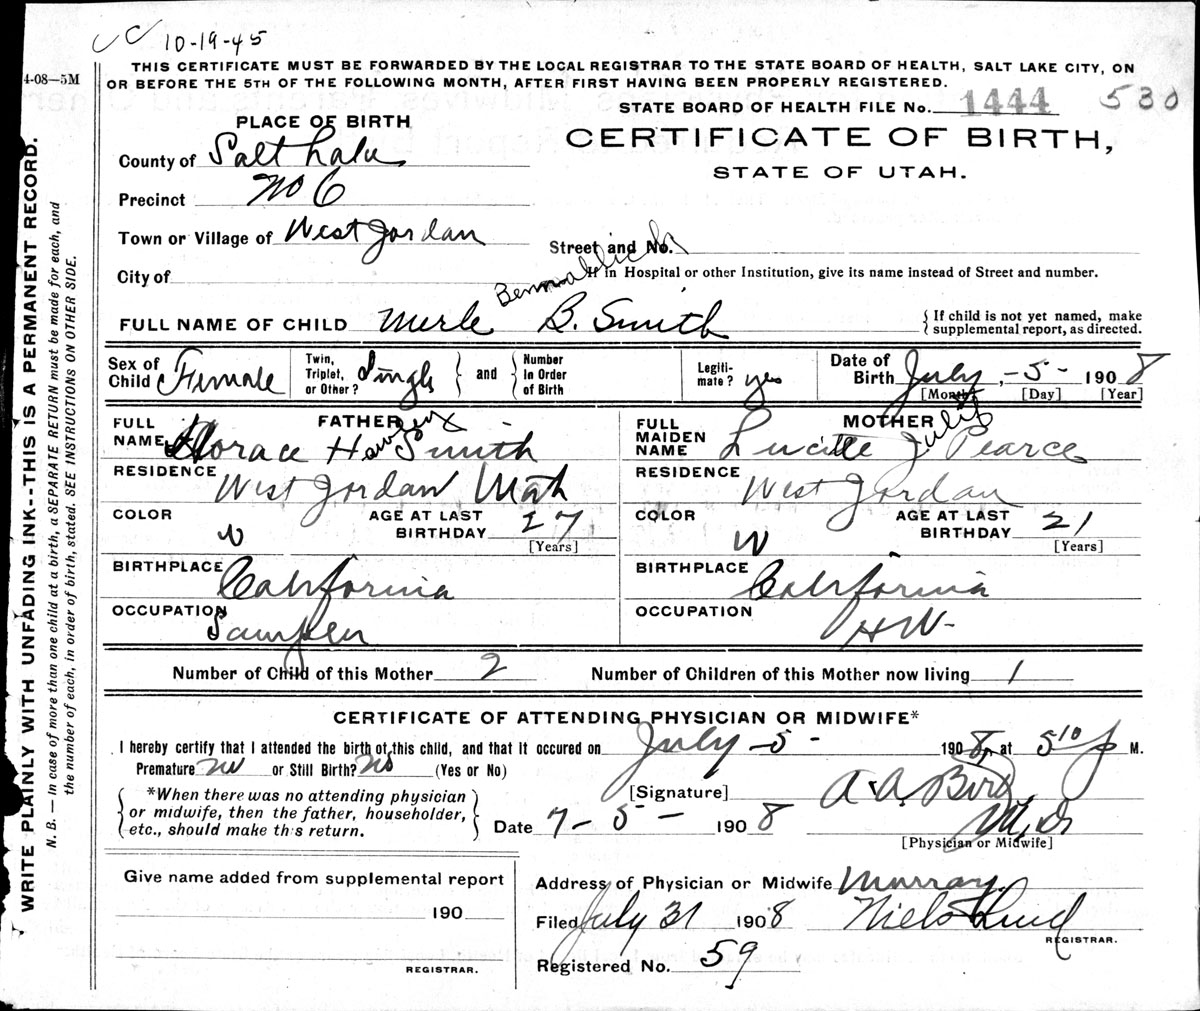 10-19-45
4-08—5M
THIS CERTIFICATE MUST BE FORWARDED BY THE LOCAL REGISTRAR TO THE STATE BOARD OF HEALTH, SALT LAKE CITY, ON
OR BEFORE THE 5TH OF THE FOLLOWING MONTH, AFTER FIRST HAVING BEEN PROPERLY REGISTERED.
STATE BOARD OF HEALTH FILE No. 1444 530
PLACE OF BIRTH
CERTIFICATE OF BIRTH,
STATE OF UTAH.
County of Salt Lake
Precinct No 6
Town or Village of West Jordan
Street and No.
City of
If in Hospital or other Institution, give its name instead of Street and number.
FULL NAME OF CHILD Merle B. Smith
{If child is not yet named, make
supplemental report, as directed.
Sex of Child Female
Twin, Triplet, or Other? Single } and { Number in Order of Birth
Legiti-mate? yes
Date of Birth July, -5- 1908
[Month] [Day] [Year]
FATHER
FULL NAME Horace Hawley Smith
RESIDENCE West Jordan Utah
COLOR W
AGE AT LAST BIRTHDAY 27
[Years]
BIRTHPLACE California
OCCUPATION Sampler
MOTHER
FULL MAIDEN NAME Lucille J. Pearce
RESIDENCE West Jordan
COLOR W
AGE AT LAST BIRTHDAY 21
[Years]
BIRTHPLACE California
OCCUPATION HW-
Number of Child of this Mother 2 Number of Children of this Mother now living 1
CERTIFICATE OF ATTENDING PHYSICIAN OR MIDWIFE*
I hereby certify that I attended the birth of this child, and that it occured on July -5- 1908, at 5 10 p M.
Premature no or Still Birth? no (Yes or No)
*When there was no attending physician
or midwife, then the father, householder,
etc., should make this return.
[Signature] A. A. Bird
M.D.
Date 7-5- 1908
[Physician or Midwife]
Give name added from supplemental report
190
REGISTRAR.
Address of Physician or Midwife Murray.
Filed July 31 1908 Niels Lind
REGISTRAR.
Registered No. 59
WRITE PLAINLY WITH UNFADING INK--THIS IS A PERMANENT RECORD.
N. B. — In case of more than one child at a birth, a SEPARATE RETURN must be made for each, and
the number of each, in order of birth, stated. SEE INSTRUCTIONS ON OTHER SIDE.